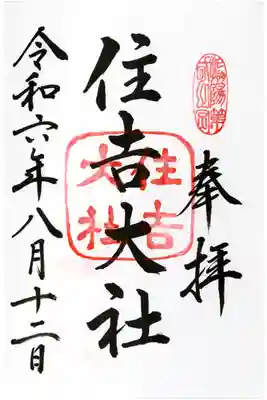 奉拝
住吉大社
住吉大社
令和六年八月十二日